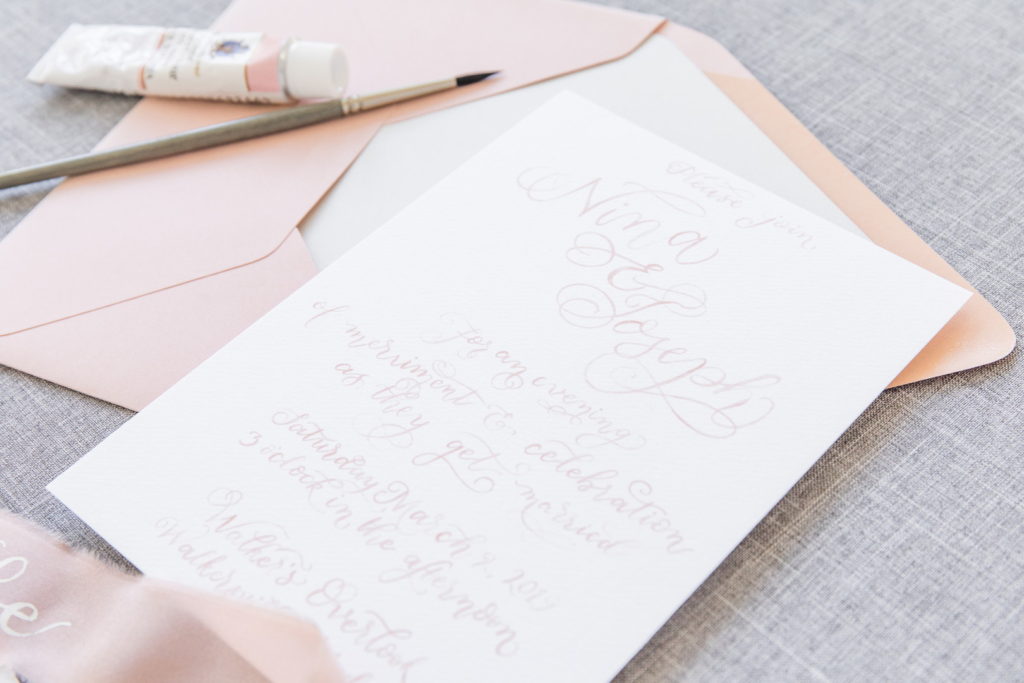 Please join
Nina
& Joseph
For an evening
of merriment & celebration
as they get married
Saturday March 2, 
3 o'clock in the afternoon
Walker's Overlook